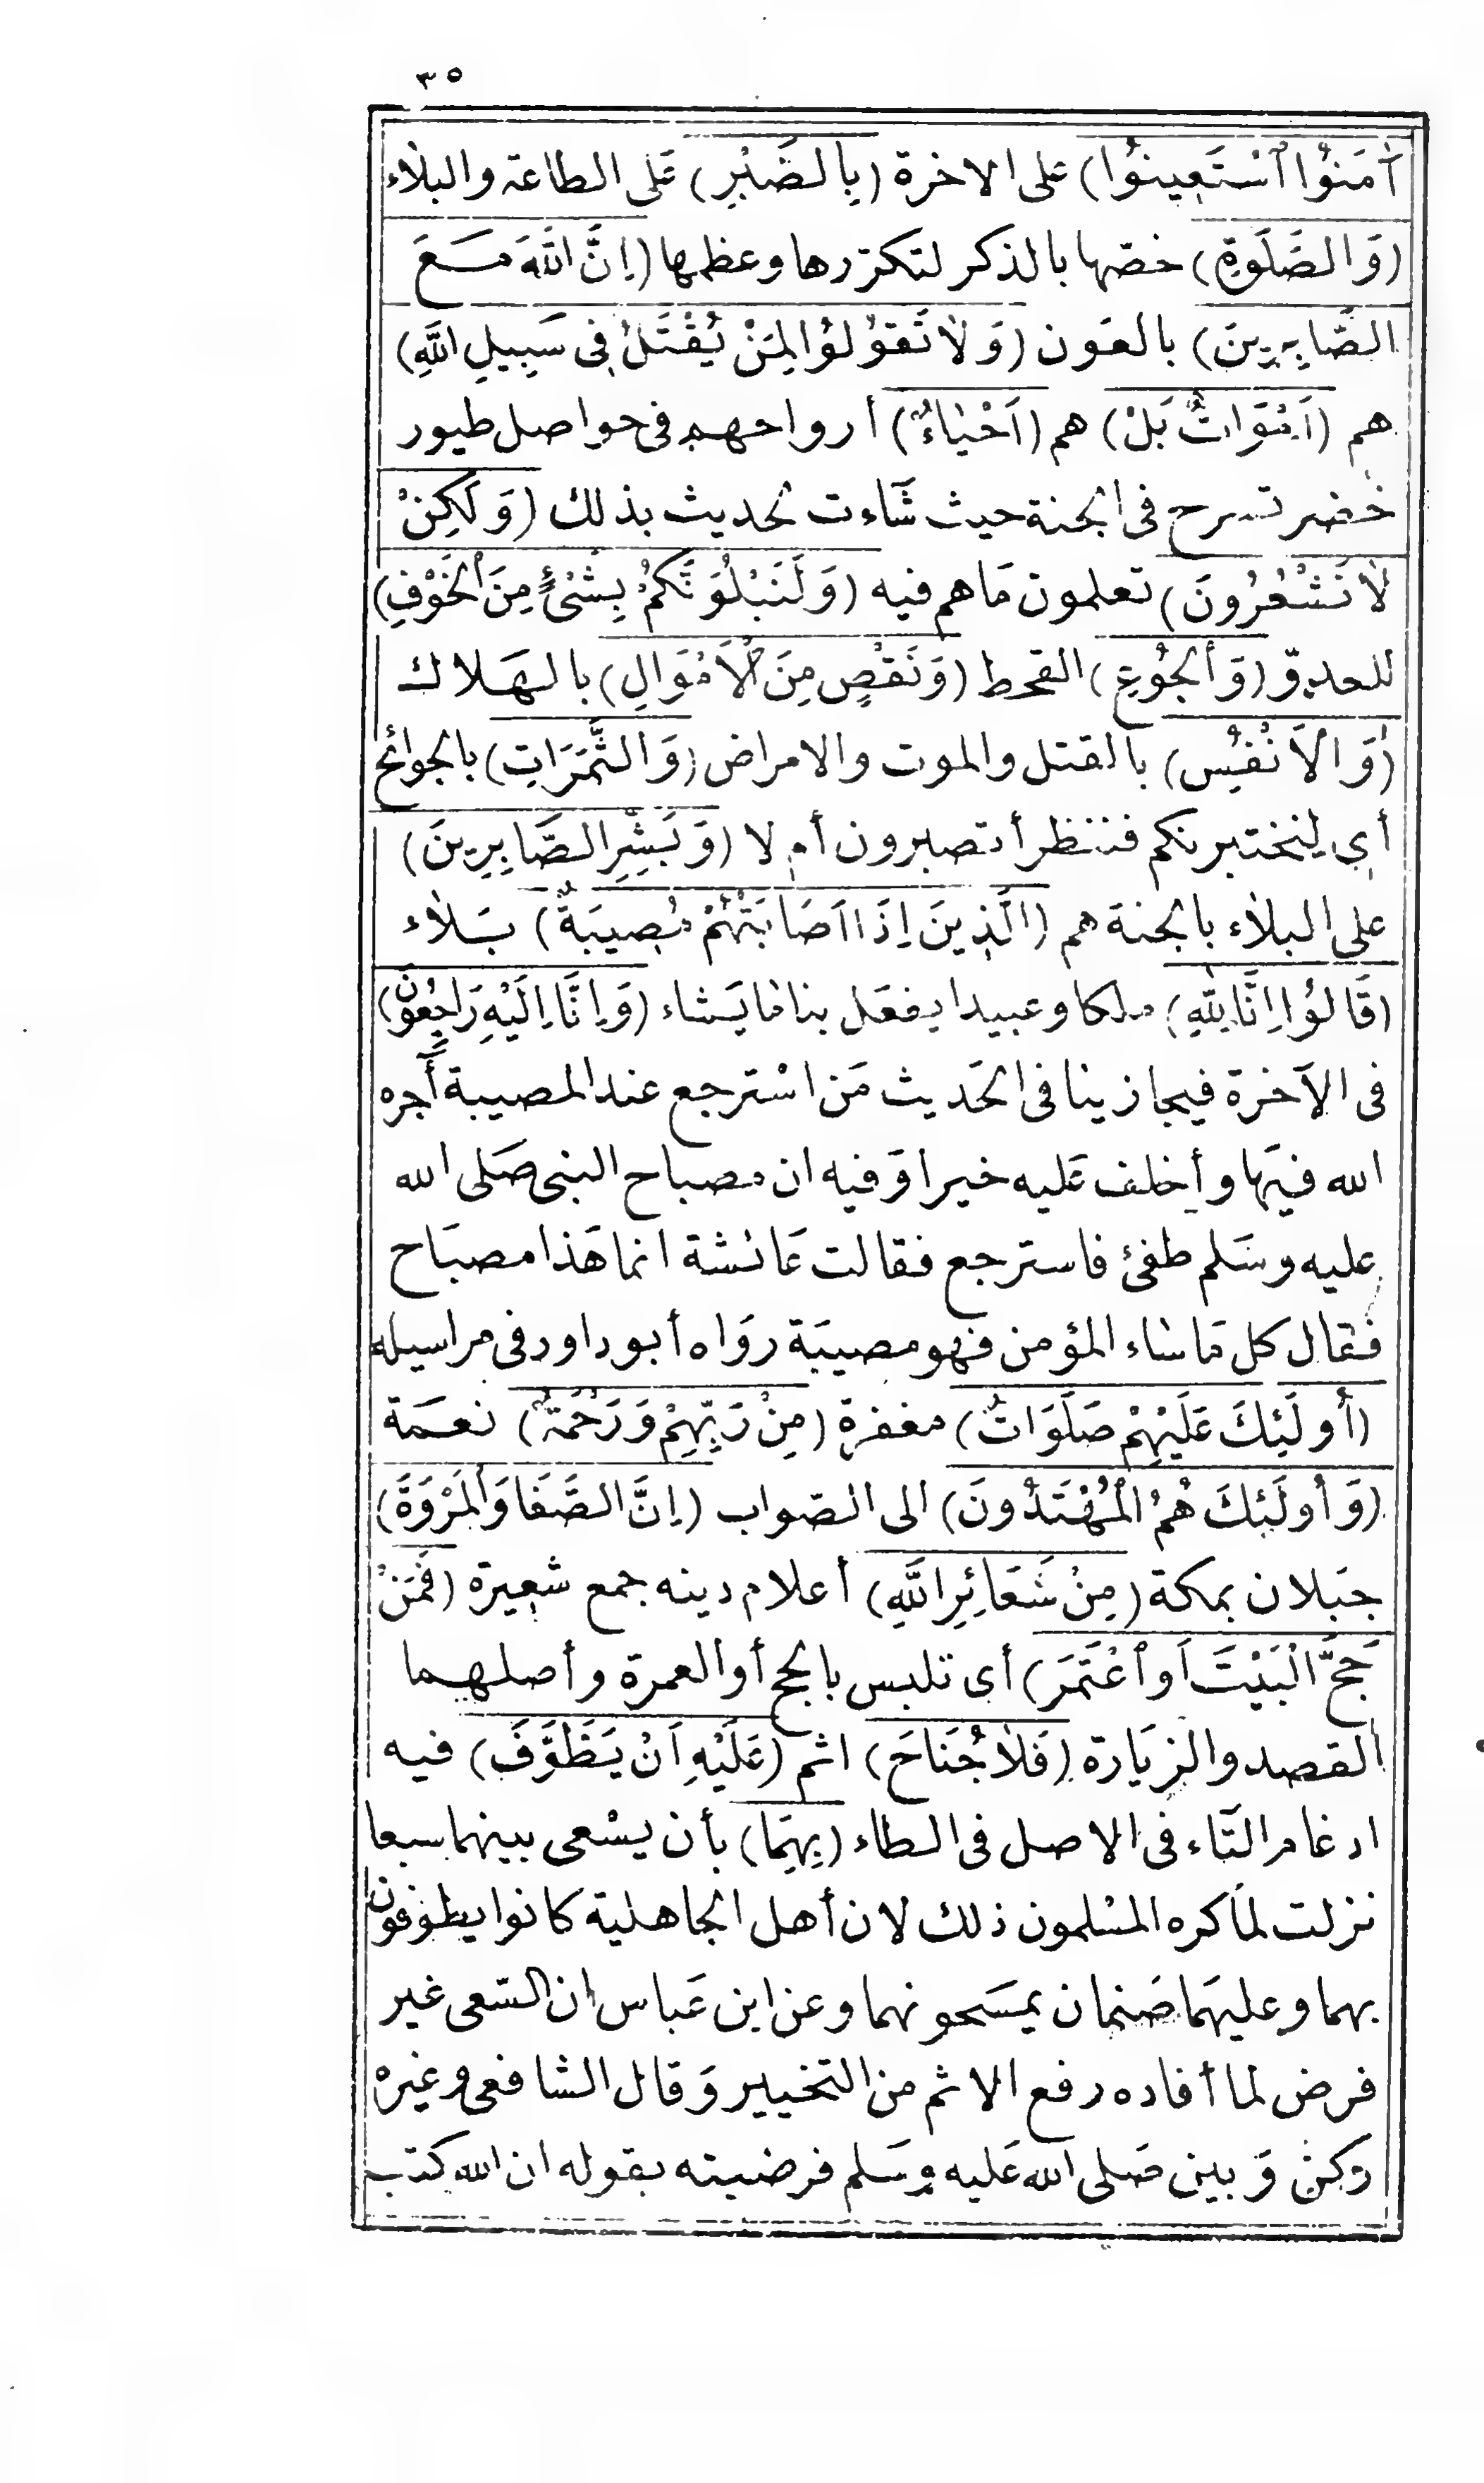 ٣٥
اٰمَنُوْا اسْتَعِينُوْا) على الاخرة (بِالصَّبْرِ) عَلى الطاعة والبلاء
(وَالصَّلَوةِ) خصّها بالذكر لتكرّرها وعظمها (اِنَّ اللّٰهَ مَعَ
الصَّابِرِينَ) بالعَون (وَلَا تَقُوْلُوْا لِمَنْ يُقْتَلُ فِى سَبِيلِ اللّٰهِ)
هم (اَمْوَاتٌ بَلْ) هم (اَحْيَاءٌ) أرواحهم فى حواصل طيور
خضر تسرح فى الجنة حيث شَآءت لحديث بذلك (وَلَكِنْ
لَا تَشْعُرُونَ) تعلمون مَا هم فيه (وَلَنَبْلُوَنَّكُمْ بِشَىْءٍ مِنَ الْخَوْفِ)
للعدوّ (وَالْجُوْعِ) القحط (وَنَقْصٍ مِنَ الْاَمْوَالِ) بالهَلاك
(وَالْاَنْفُسِ) بالقتل والموت والامراض (وَالثَّمَرَاتِ) بالجوائح
أى لنختبرنكم فننظر أتصبرون أم لا (وَبَشِّرِ الصَّابِرِينَ)
على البلاء بالجنة هم (الَّذِينَ اِذَا اَصَابَتْهُمْ مُصِيبَةٌ) بَلاء
(قَالُوْا اِنَّا لِلّٰهِ) ملكا وعبيدا يفعَل بنا مَا يَشاء (وَاِنَّا اِلَيْهِ رَاجِعُونَ)
فى الآخرة فيجازينا فى الحَديث مَن اسْترجع عند المصيبة أجره
الله فيهَا وأخلف عَليه خيرا وَفيه ان مصباح النبى صَلى الله
عليه وسَلم طفئ فاسترجع فقالت عَائشة انما هَذا مصبَاح
فقال كل مَا ساء المؤمن فهو مصيبَة روَاه أبو داود فى مراسيله
(أُولَئِكَ عَلَيْهِمْ صَلَوَاتٌ) مغفرة (مِنْ رَبِّهِمْ وَرَحْمَةٌ) نعمَة
(وَأُولَئِكَ هُمُ الْمُهْتَدُونَ) الى الصّواب (اِنَّ الصَّفَا وَالْمَرْوَةَ)
جبَلان بمكة (مِنْ شَعَائِرِ اللّٰهِ) أعلام دينه جمع شعيرة (فَمَنْ
حَجَّ الْبَيْتَ اَوِ اعْتَمَرَ) أى تلبس بالحج أو العمرة وأصلهما
القصد والزيَارة (فَلَا جُنَاحَ) اثم (عَلَيْهِ اَنْ يَطَّوَّفَ) فيه
ادغام التّاء فى الاصل فى الطاء (بِهِمَا) بأن يسْعى بينهما سبعا
نزلت لمَا كره المسْلمون ذلك لان أهل الجاهلية كانوا يطوفون
بهما وعليهمَا صَنمان يمسَحونهما وعن ابن عَباس ان السّعى غير
فرض لما أفاده رفع الاثم من التخيير وَقال الشافعى وغيره
ركن وَبين صَلى الله عَليه وسَلم فرضيته بقوله ان الله كتب